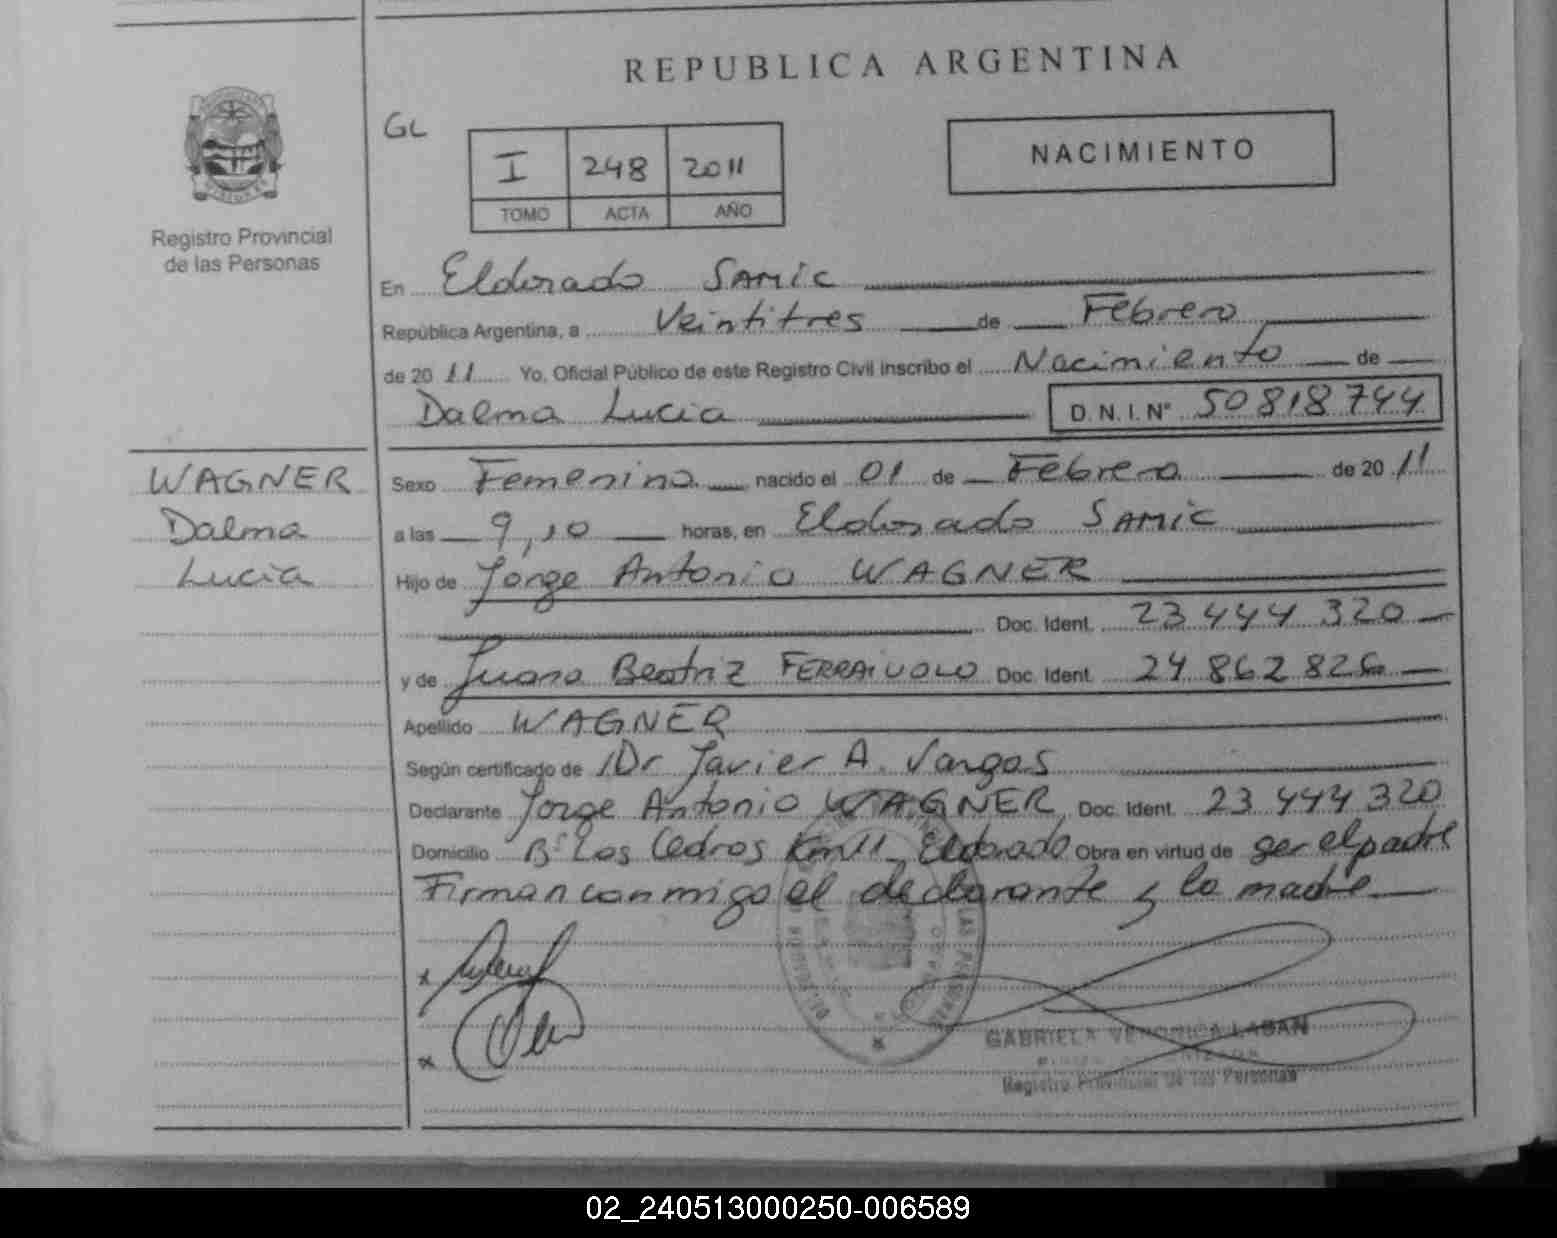 REPUBLICA ARGENTINA
GL
I 248 2011
TOMO ACTA AÑO
NACIMIENTO
Registro Provincial
de las Personas
En Eldorado SAMIC
República Argentina, a Veintitres de Febrero
de 20 11 Yo, Oficial Público de este Registro Civil inscribo el Nacimiento de
Dalma Lucia D.N.I. Nº 50818744
WAGNER
Dalma
Lucia
Sexo Femenino nacido el 01 de Febrero de 20 11
a las 9,10 horas, en Eldorado SAMIC
Hijo de Jorge Antonio WAGNER
Doc. Ident. 23 444 320
y de Juana Beatriz FERRAIUOLO Doc. Ident. 24 862 826
Apellido WAGNER
Según certificado de Dr Javier A. Vargas
Declarante Jorge Antonio WAGNER Doc. Ident. 23 444 320
Domicilio Bº Los Cedros Km 11 Eldorado Obra en virtud de ser el padre
Firman conmigo el declarante y la madre
LAS PERSONAS
GABRIELA VERONICA LABAN
Registro Provincial de las Personas
02_240513000250-006589